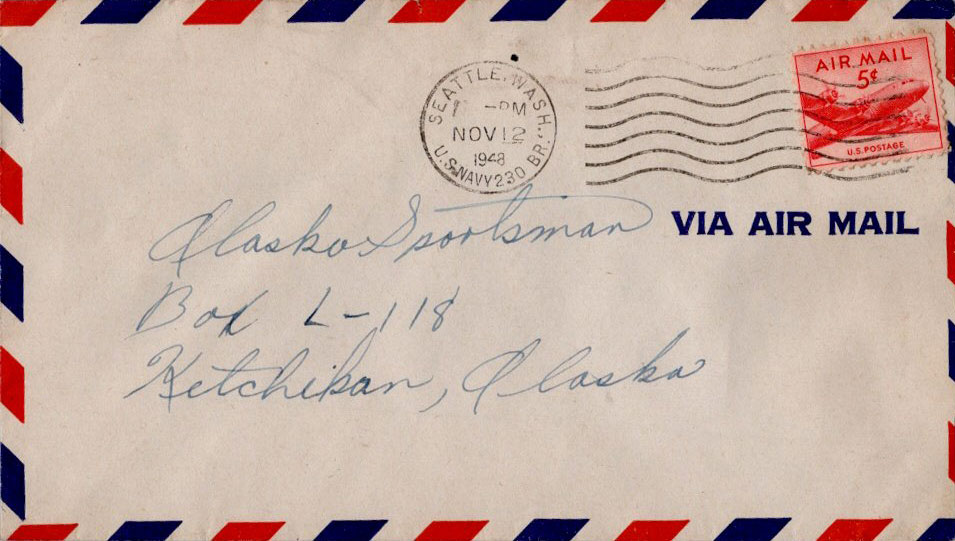 SEATTLE, WASH.,
-PM
NOV 12
1948
U.S. NAVY 230 BR.
AIR MAIL
5¢
U.S. POSTAGE
VIA AIR MAIL
Alaska Sportsman
Box L-118
Ketchikan, Alaska